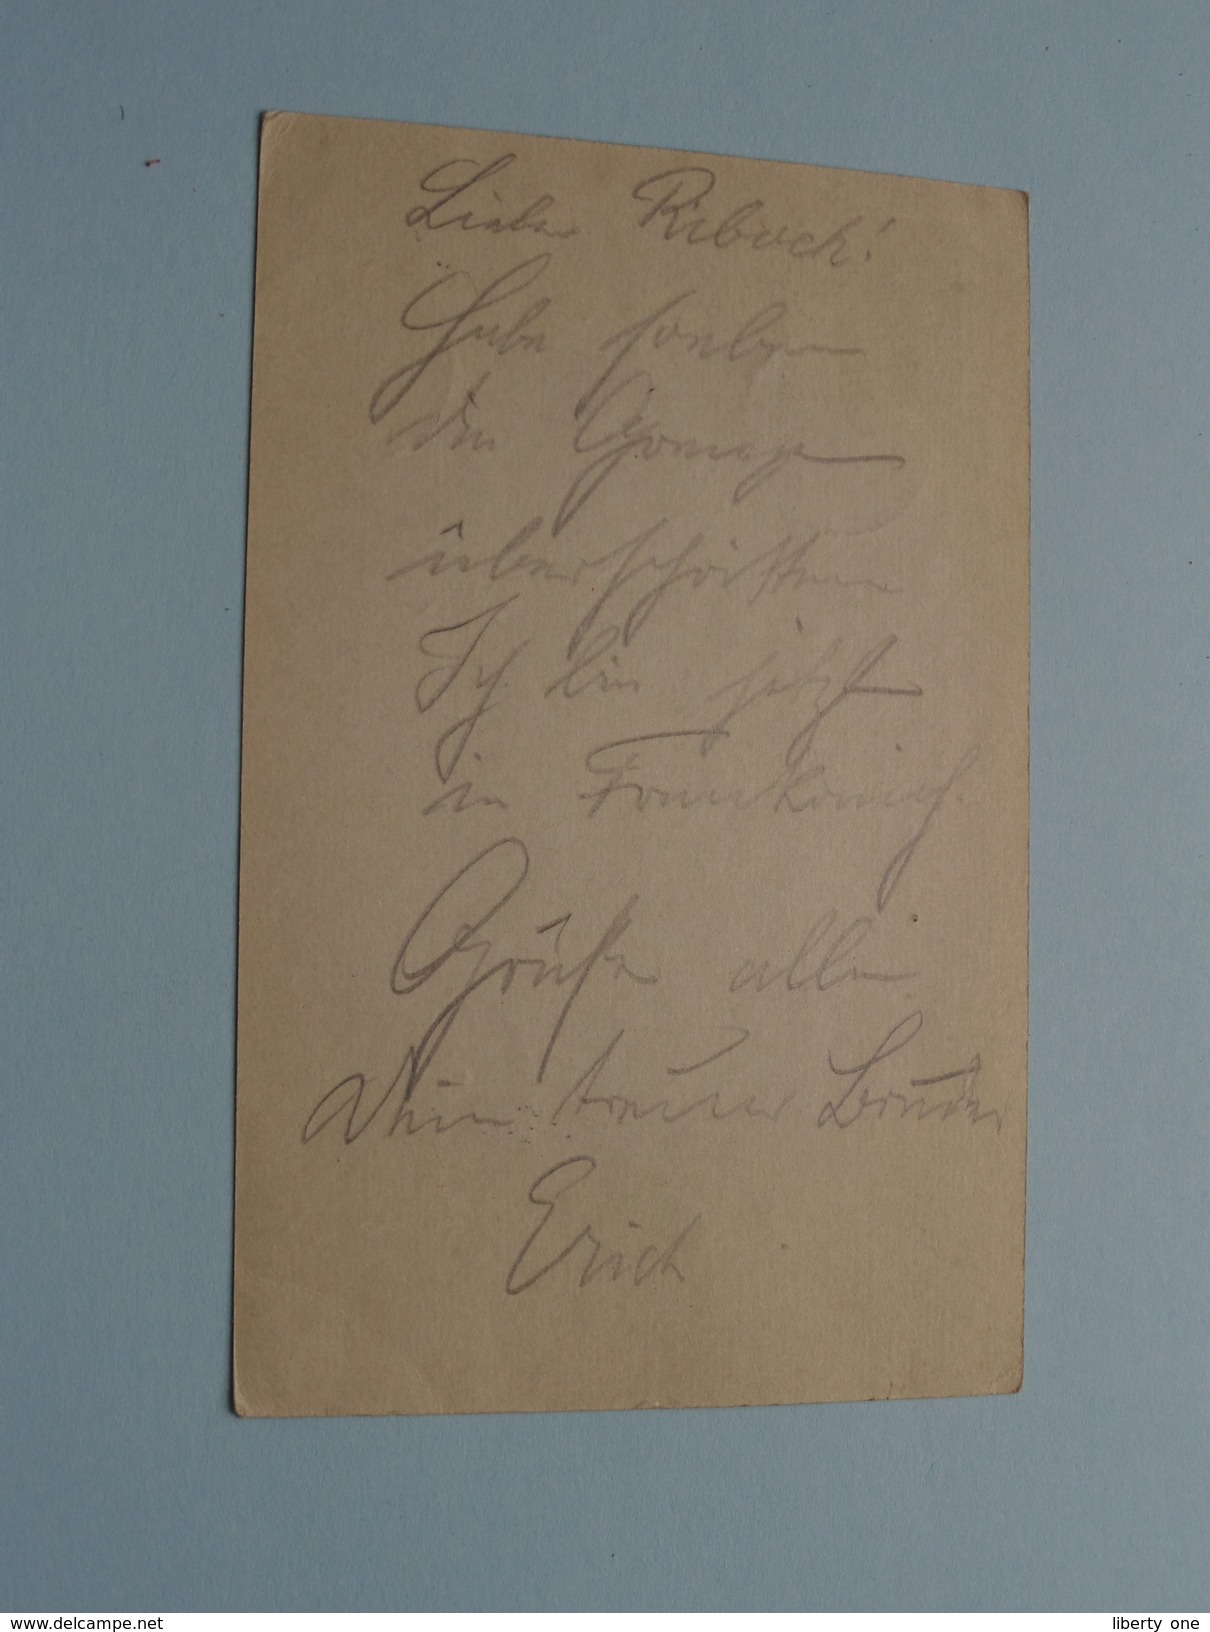 Lieber Riboch!
Habe soeben
die Grenze
überschritten
Ich bin jetzt
in Frankreich.
Grüße alle
Dein treuer Bruder
Erich
www.delcampe.net
liberty_one